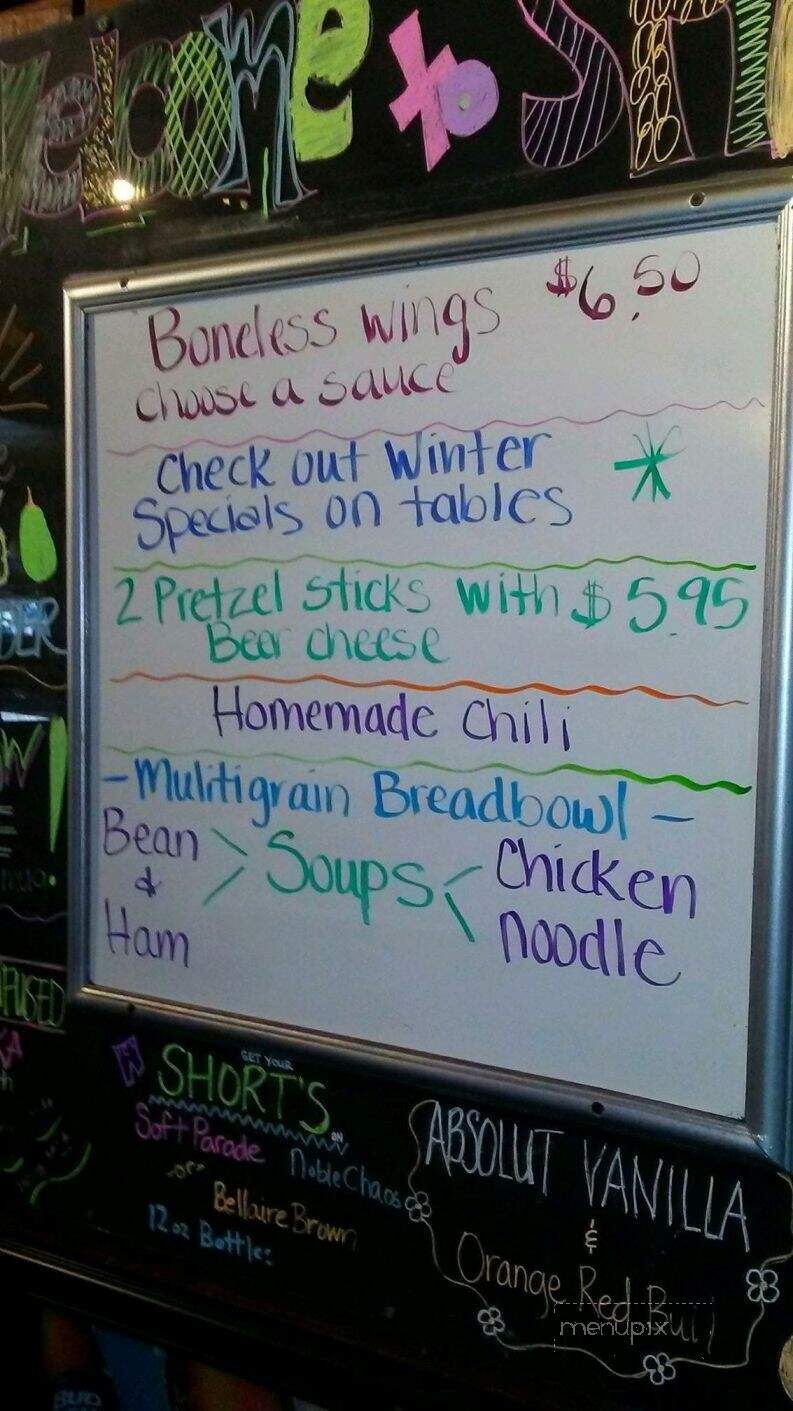 Welcome to
Boneless Wings $6.50
choose a sauce
Check out Winter
Specials on tables
2 Pretzel sticks with $5.95
Beer cheese
Homemade Chili
- Mulitigrain Breadbowl -
Bean & Ham > Soups < Chicken noodle
GET YOUR
SHORT'S
ON
Soft Parade
Noble Chaos
-or-
Bellaire Brown
12 oz Bottle:
ABSOLUT VANILLA
&
Orange Red Bull
menupix